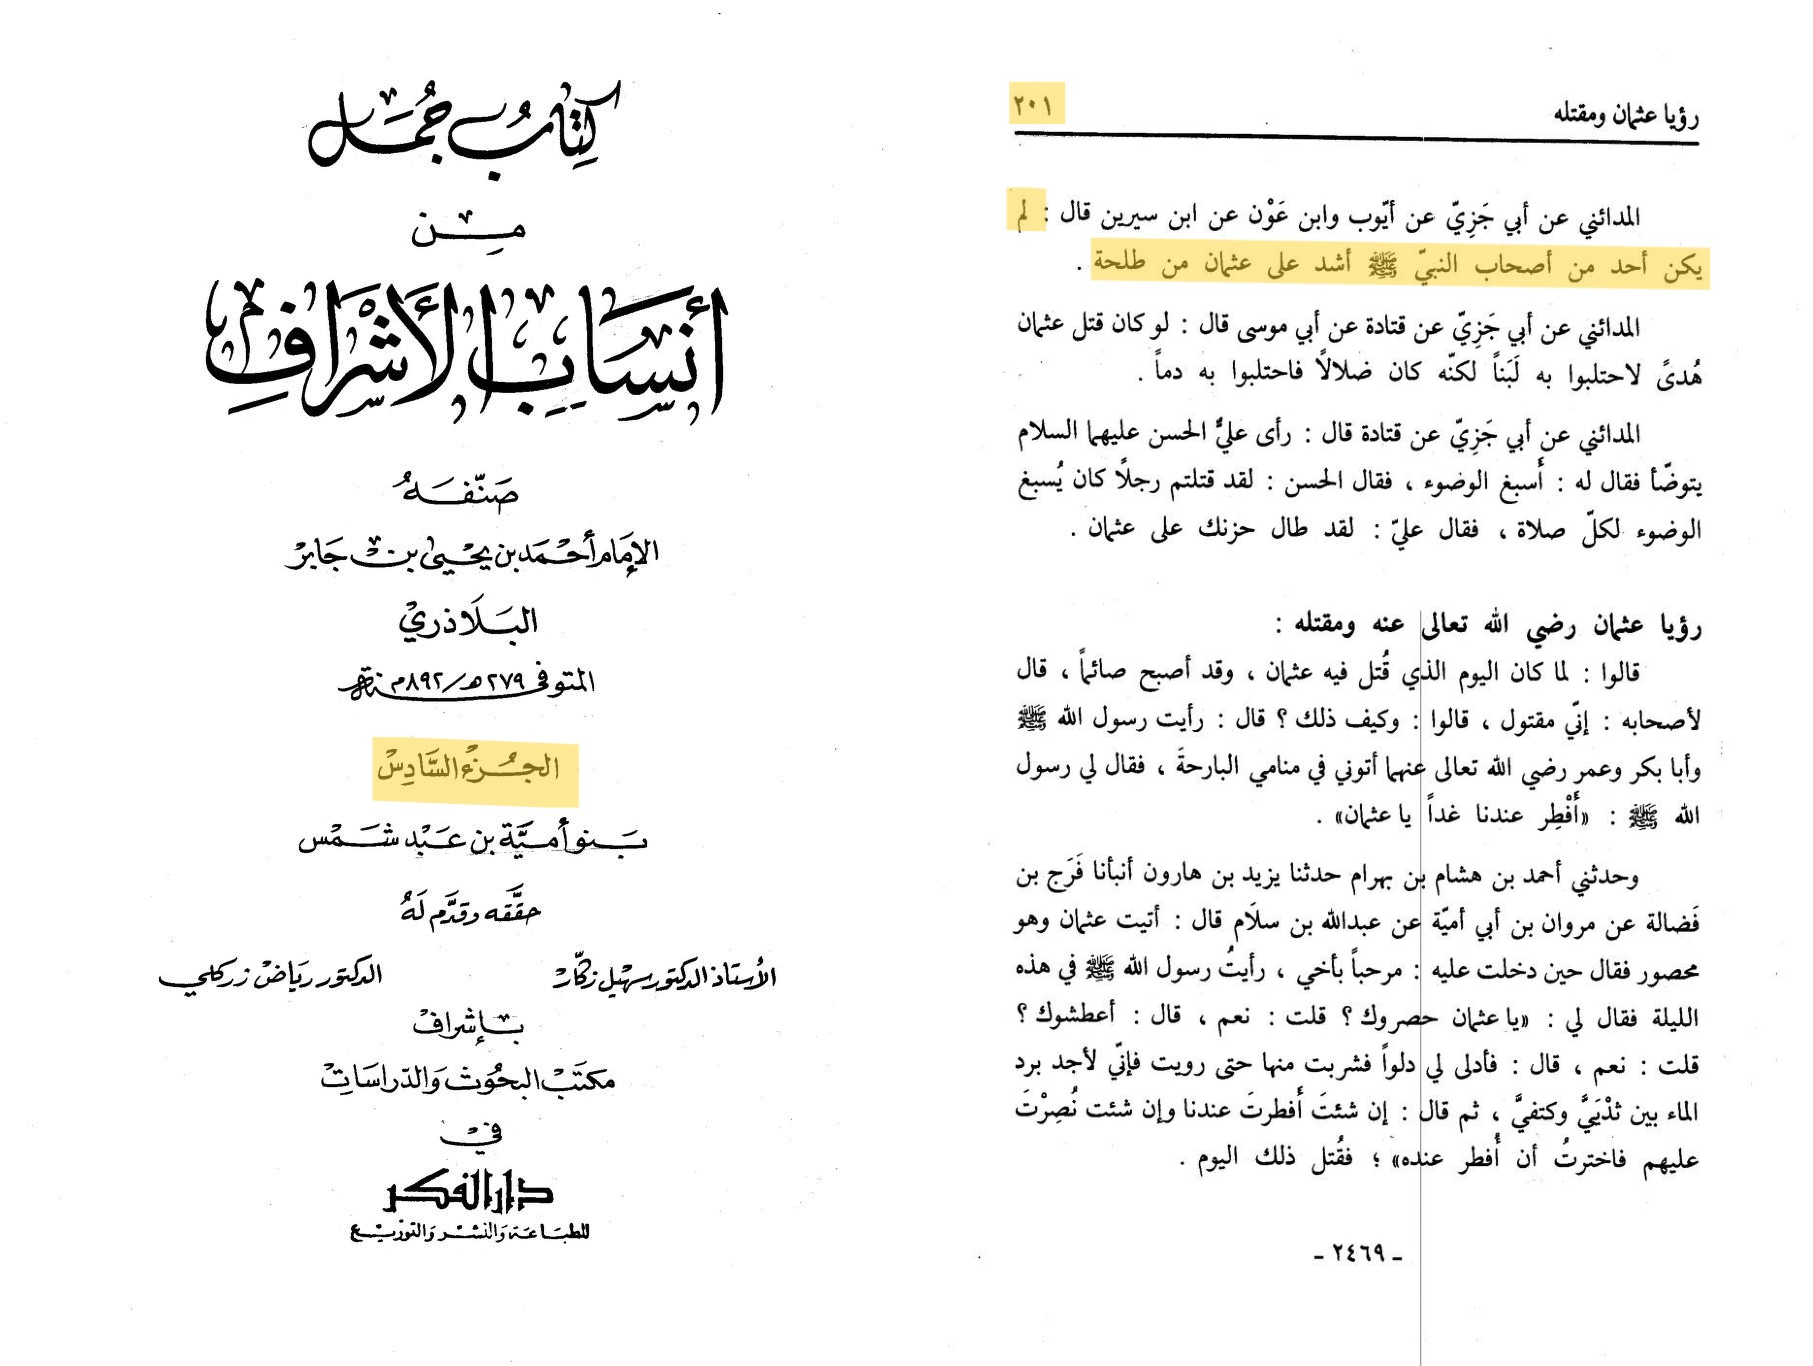 كتاب جُمَل
مِن
أنسَاب الأَشْرَافِ
صَنّفَهُ
الإمَام أحْمَد بن يَحْيىٰ بن جَابر
البَلَاذري
المتوفى سنة ٢٧٩ هـ/٨٩٢م
الجُزء السَّادِسْ
بَنو أميَّة بن عَبْد شَمْس
حقّقه وقدَّم لَهُ
الأستاذ الدكتور سهيل زكّار
الدكتور ريَاض زركلي
بإشراف
مكتَب البحُوث وَالدّراسَات
في
دار الفكر
للطبَاعَة وَالنشر وَالتوزيع
رؤيا عثمان ومقتله
٢٠١
المدائني عن أبي جَزِيّ عن أيّوب وابن عَوْن عن ابن سيرين قال : لم
يكن أحد من أصحاب النبيّ ﷺ أشد على عثمان من طلحة .
المدائني عن أبي جَزِيّ عن قتادة عن أبي موسى قال : لو كان قتل عثمان
هُدىً لاحتلبوا به لَبَناً لكنّه كان ضلالاً فاحتلبوا به دماً .
المدائني عن أبي جَزِيّ عن قتادة قال : رأى عليٌّ الحسن عليهما السلام
يتوضّأ فقال له : أَسبغ الوضوء ، فقال الحسن : لقد قتلتم رجلاً كان يُسبغ
الوضوء لكلّ صلاة ، فقال عليّ : لقد طال حزنك على عثمان .
رؤيا عثمان رضي الله تعالى عنه ومقتله :
قالوا : لما كان اليوم الذي قُتل فيه عثمان ، وقد أصبح صائماً ، قال
لأصحابه : إنّي مقتول ، قالوا : وكيف ذلك ؟ قال : رأيت رسول الله ﷺ
وأبا بكر وعمر رضي الله تعالى عنهما أتوني في منامي البارحةَ ، فقال لي رسول
الله ﷺ : «أَفْطِر عندنا غداً يا عثمان» .
وحدثني أحمد بن هشام بن بهرام حدثنا يزيد بن هارون أنبأنا فَرَج بن
فَضالة عن مروان بن أبي أميّة عن عبدالله بن سلَام قال : أتيت عثمان وهو
محصور فقال حين دخلت عليه : مرحباً بأخي ، رأيتُ رسول الله ﷺ في هذه
الليلة فقال لي : «يا عثمان حصروك ؟ قلت : نعم ، قال : أعطشوك ؟
قلت : نعم ، قال : فأدلى لي دلواً فشربت منها حتى رويت فإنّي لأجد برد
الماء بين ثدْيَيَّ وكتفيَّ ، ثم قال : إن شئتَ أَفطرتَ عندنا وإن شئت نُصِرْتَ
عليهم فاخترتُ أن أُفطر عنده» ؛ فقُتل ذلك اليوم .
- ٢٤٦٩ -